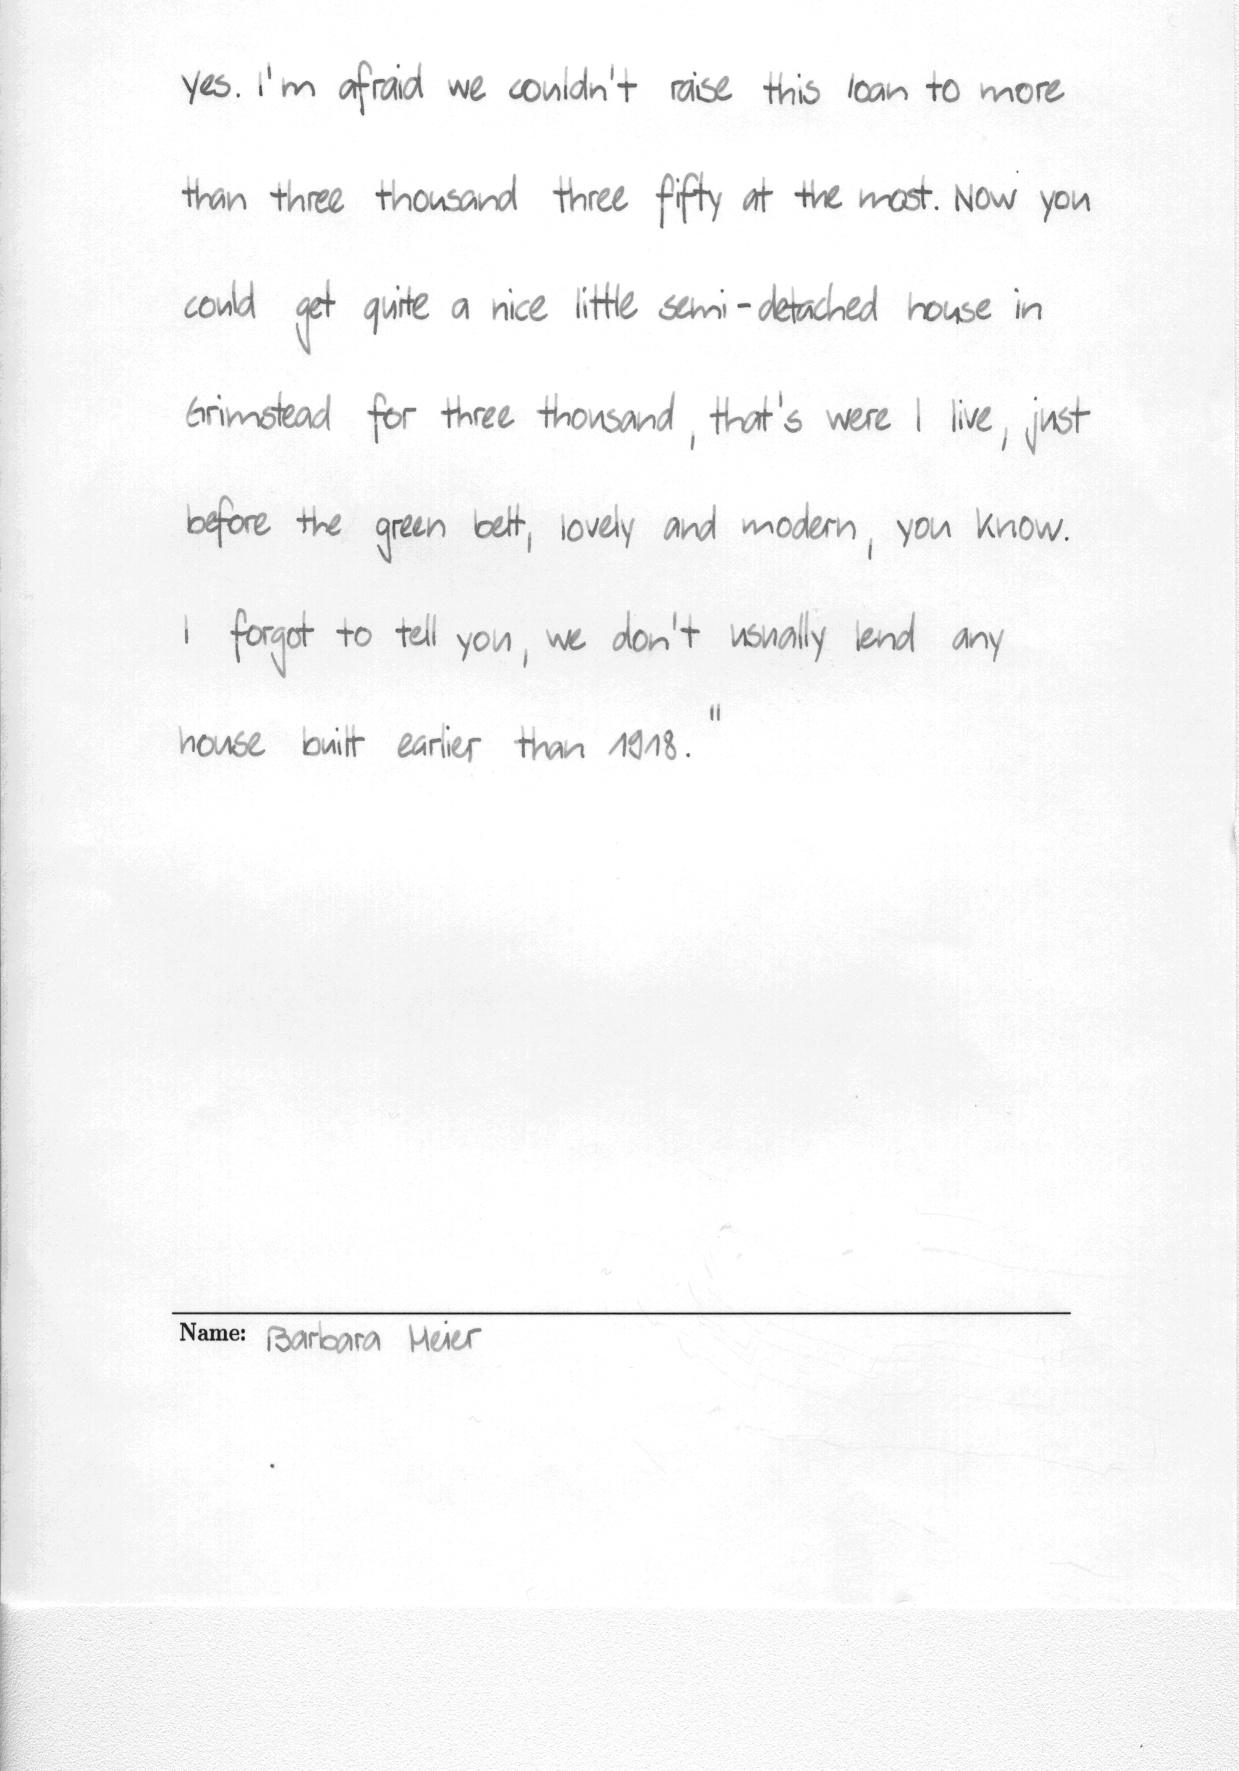 yes. I'm afraid we couldn't raise this loan to more
than three thousand three fifty at the most. Now you
could get quite a nice little semi-detached house in
Grimstead for three thousand, that's were I live, just
before the green belt, lovely and modern, you know.
I forgot to tell you, we don't usually lend any
house built earlier than 1918."
Name: Barbara Meier